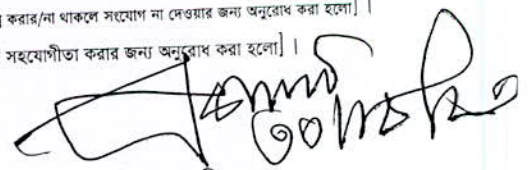 করার/না থাকলে সংযোগ না দেওয়ার জন্য অনুরোধ করা হলো] ।
সহযোগীতা করার জন্য অনুরোধ করা হলো] ।